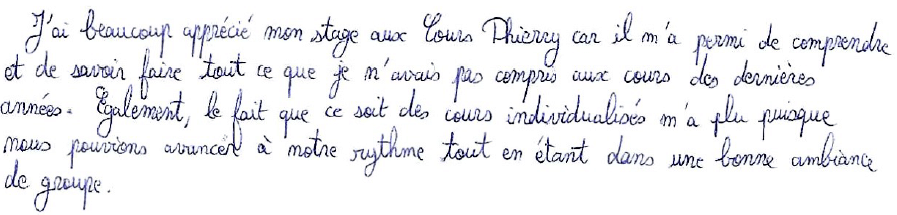 J'ai beaucoup apprécié mon stage aux Cours Thierry car il m'a permi de comprendre
et de savoir faire tout ce que je n'avais pas compris aux cours des dernières
années. Également, le fait que ce soit des cours individualisés m'a plu puisque
nous pouvions avancer à notre rythme tout en étant dans une bonne ambiance
de groupe.